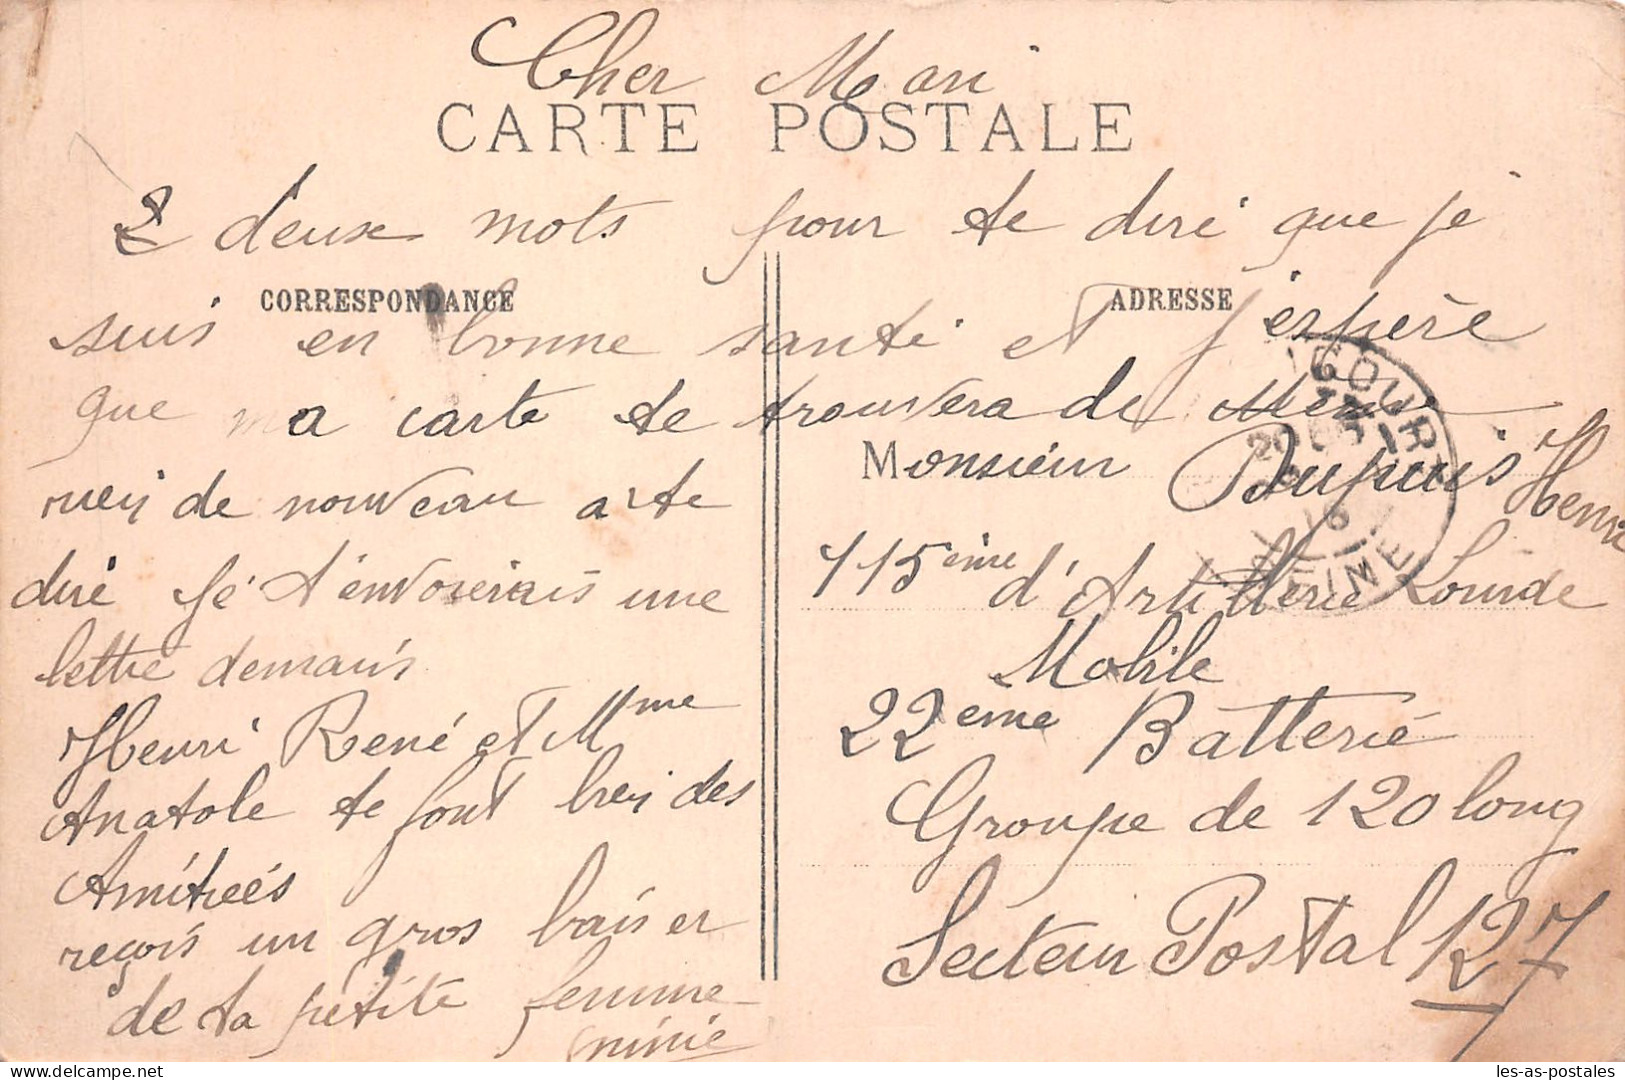 Cher Mari
CARTE POSTALE
2 deux mots pour te diré que je
CORRESPONDANCE
ADRESSE
suis en bonne santé et j'espère
que ma carte te trouvera de Même
rien de nouveau a te
diré je t'envoieirais une
lettre demain
Henri René et Mme
Anatole te font bien des
Amitiées
reçois un gros baiser
de ta petite femme
ninie
Monsieur Dupuis Henri
115ème d'Artillerie Lourde
Mobile
22ème Batterie
Groupe de 120 long
Secteur Postal 127
GOURN
20
16
les-as-postales